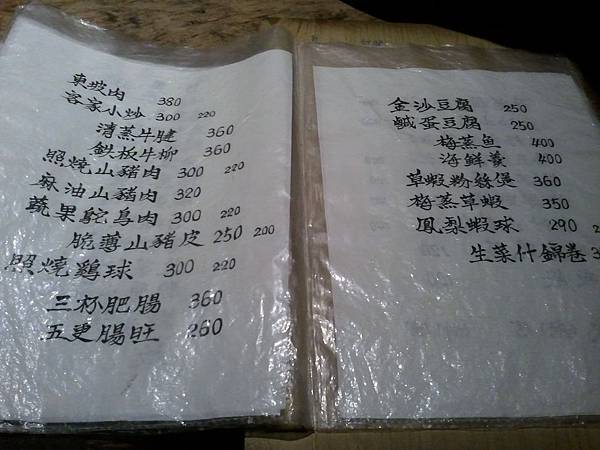 東坡肉 380
客家小炒 300 220
清蒸牛腱 360
鉄板牛柳 360
照燒山豬肉 300 220
麻油山豬肉 320
蔬果鴕鳥肉 300 220
脆薄山豬皮 250 200
照燒鷄球 300 220
三杯肥腸 360
五更腸旺 260
金沙豆腐 250
鹹蛋豆腐 250
梅蒸魚 400
海鮮羹 400
草蝦粉絲煲 360
梅蒸草蝦 350
鳳梨蝦球 290
生菜什錦卷